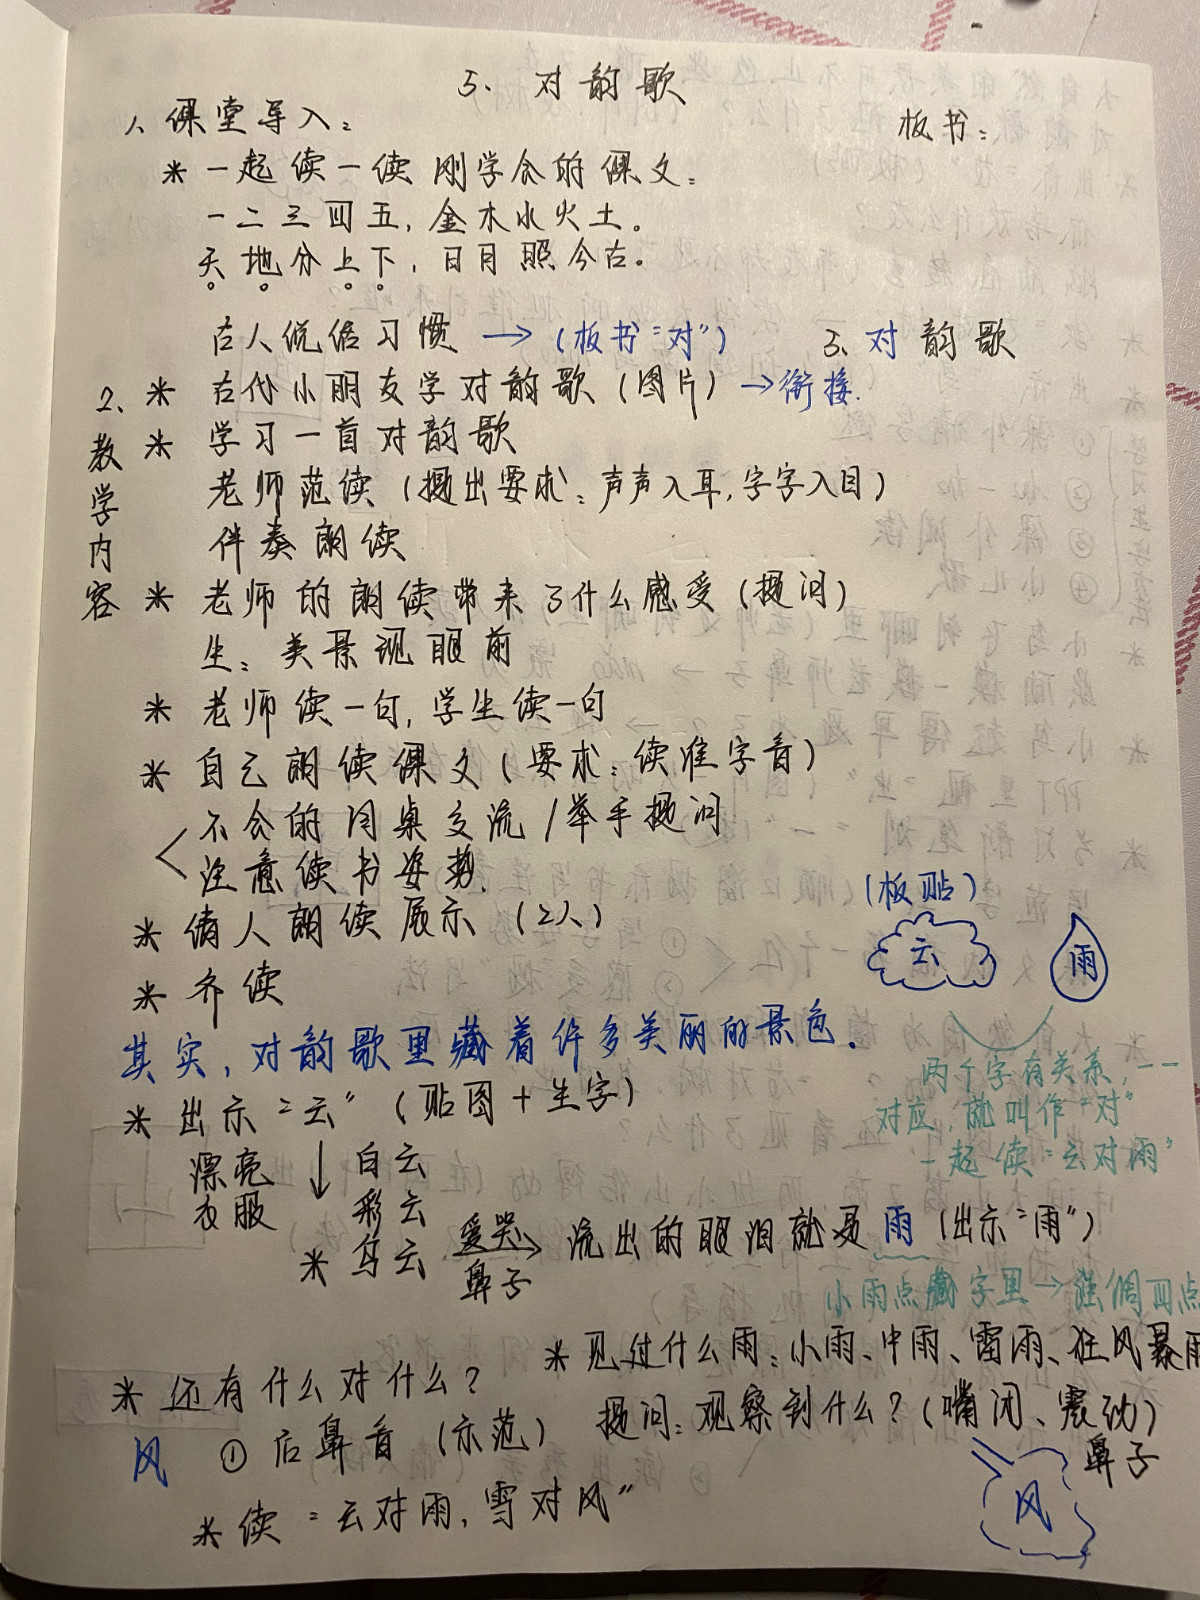 5. 对韵歌
1、课堂导入：
板书：
* 一起读一读 刚学会的课文：
一二三四五，金木水火土。
天地分上下，日月照今古。
古人说话习惯 → (板书“对”)
5、对韵歌
2、教学内容
* 古代小朋友学对韵歌 (图片) → 衔接.
* 学习一首对韵歌
老师范读 (提出要求：声声入耳,字字入目)
伴奏朗读
* 老师的朗读带来了什么感受 (提问)
生：美景现眼前
* 老师读一句, 学生读一句
* 自己朗读课文 (要求：读准字音)
不会的同桌交流 / 举手提问
注意读书姿势.
(板贴)
云
雨
* 请人朗读展示 (2人)
* 齐读
其实, 对韵歌里藏着许多美丽的景色.
两个字有关系, 一一
对应, 就叫作“对”
一起读“云对雨”
* 出示“云” (贴图 + 生字)
漂亮衣服 ↓ 白云
彩云
* 乌云 爱哭 鼻子 → 流出的眼泪就是雨 (出示“雨”)
小雨点藏字里 → 强调四点
* 见过什么雨：小雨、中雨、雷雨、狂风暴雨
* 还有什么对什么?
风 ① 后鼻音 (示范) 提问：观察到什么? (嘴闭、震动)
鼻子
风
* 读“云对雨, 雪对风”